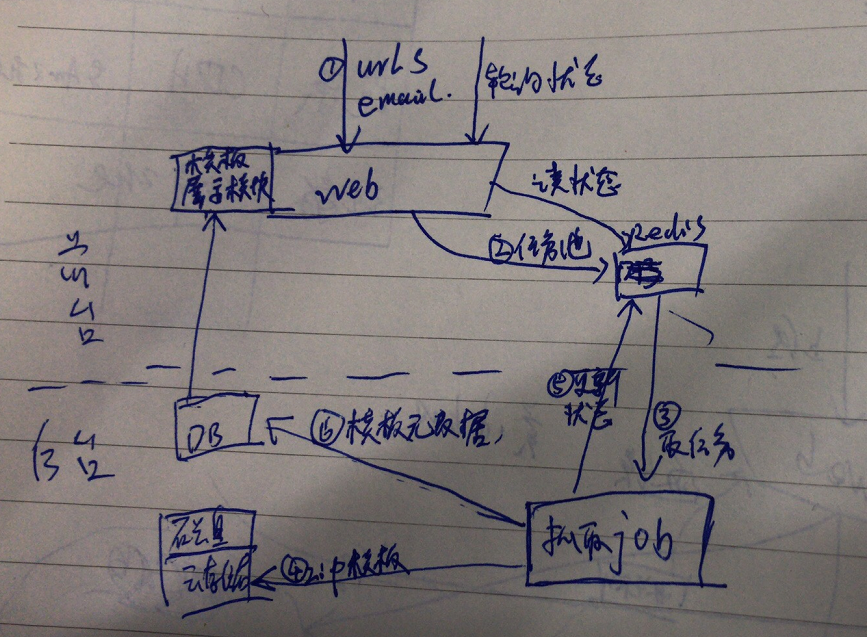 ① urls
email.
轮询状态
模板
展示模块
web
读状态
②任务池
Redis
⑤更新
状态
③
取任务
DB
⑥模板元数据
抓取job
磁盘
云存储
④zip模板